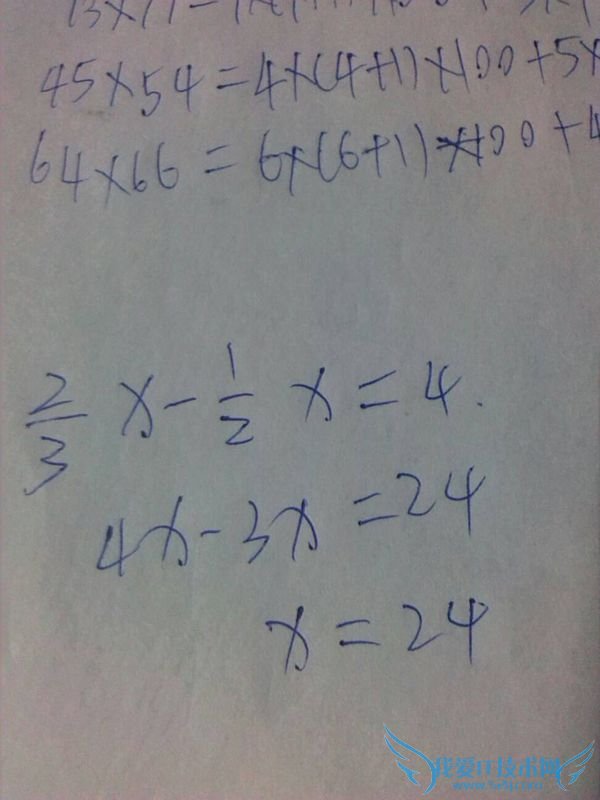 45×54=4×(4+1)×100+5×
64×66=6×(6+1)×100+4
2/3 x - 1/2 x = 4.
4x-3x=24
x=24
我爱IT技术网